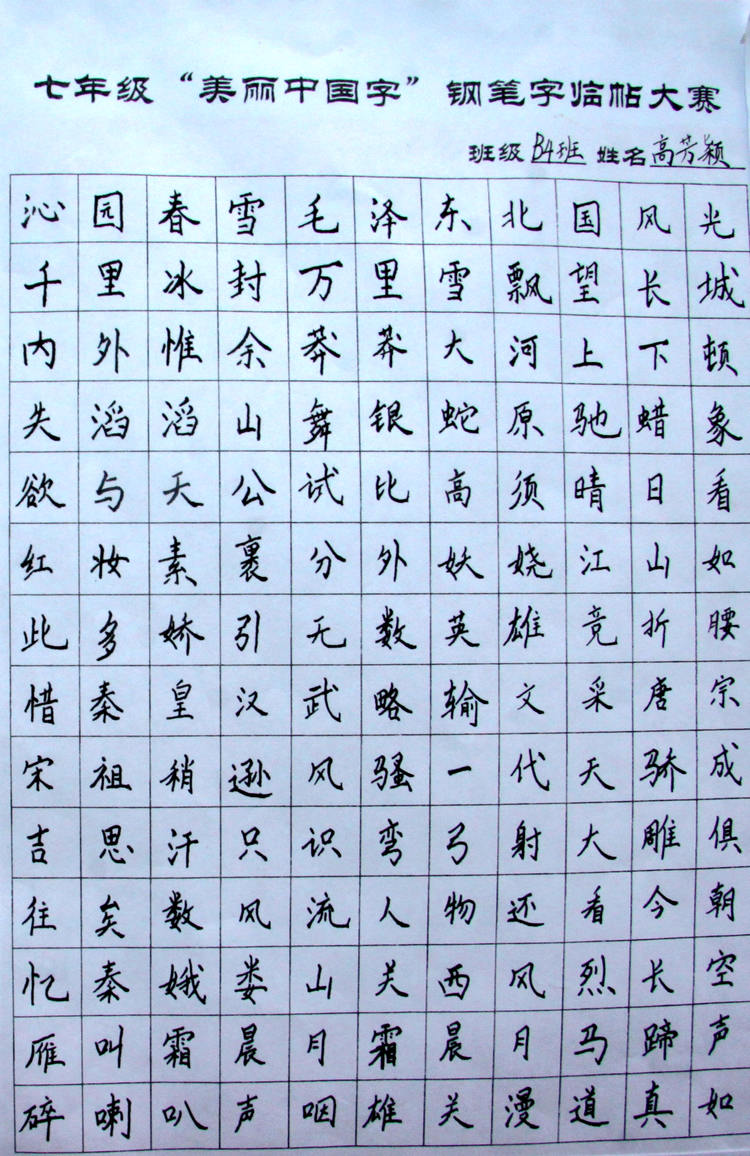 七年级“美丽中国字”钢笔字临帖大赛
班级 B4班 姓名 高芳颖
沁园春雪毛泽东北国风光
千里冰封万里雪飘望长城
内外惟余莽莽大河上下顿
失滔滔山舞银蛇原驰蜡象
欲与天公试比高须晴日看
红妆素裹分外妖娆江山如
此多娇引无数英雄竞折腰
惜秦皇汉武略输文采唐宗
宋祖稍逊风骚一代天骄成
吉思汗只识弯弓射大雕俱
往矣数风流人物还看今朝
忆秦娥娄山关西风烈长空
雁叫霜晨月霜晨月马蹄声
碎喇叭声咽雄关漫道真如